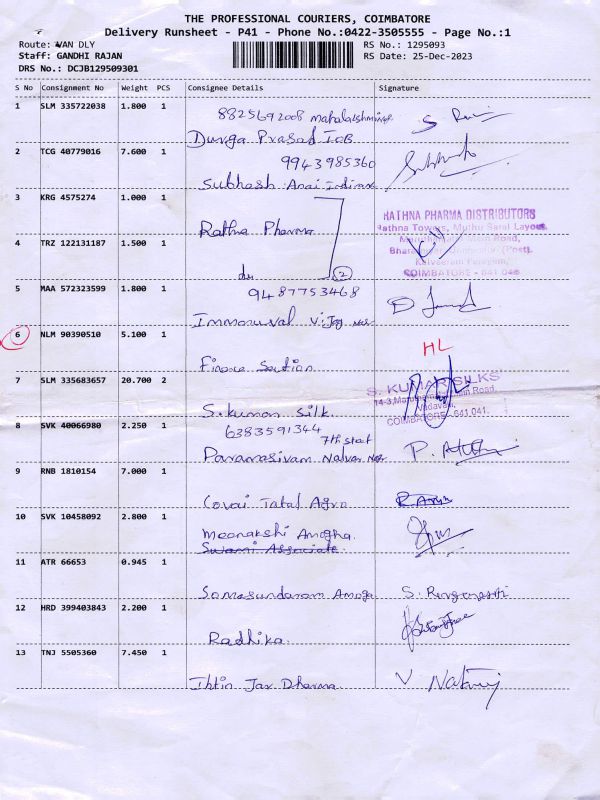 THE PROFESSIONAL COURIERS, COIMBATORE
Delivery Runsheet - P41 - Phone No.:0422-3505555 - Page No.:1
Route: VAN DLY
RS No.: 1295093
Staff: GANDHI RAJAN
RS Date: 25-Dec-2023
DRS No.: DCJB129509301
S No Consignment No Weight PCS Consignee Details Signature
1 SLM 335722038 1.800 1
8825692008
Durga Prasad IOB
2 TCG 40779016 7.600 1
9943985360
Subhash Anai
3 KRG 4575274 1.000 1
Rathna Pharma
RATHNA PHARMA DISTRIBUTORS
Rathna Towers,
4 TRZ 122131187 1.500 1
do 2
COIMBATORE - 641 046
5 MAA 572323599 1.800 1
9487753468
6 NLM 90390510 5.100 1
HL
Finance Section
7 SLM 335683657 20.700 2
S. KUMAR SILKS
Main Road,
Vadavalli,
COIMBATORE - 641 041.
S. kumar Silk.
8 SVK 40066980 2.250 1
6383591344
7th
Paramasivam Nalvar
P.
9 RNB 1810154 7.000 1
Covai Agro
10 SVK 10458092 2.800 1
Meenakshi Amogha.
Swami Associate.
11 ATR 66653 0.945 1
Somasundaram Amoga
S.
12 HRD 399403843 2.200 1
Radhika
13 TNJ 5505360 7.450 1
Jax Dharma
V Natraj